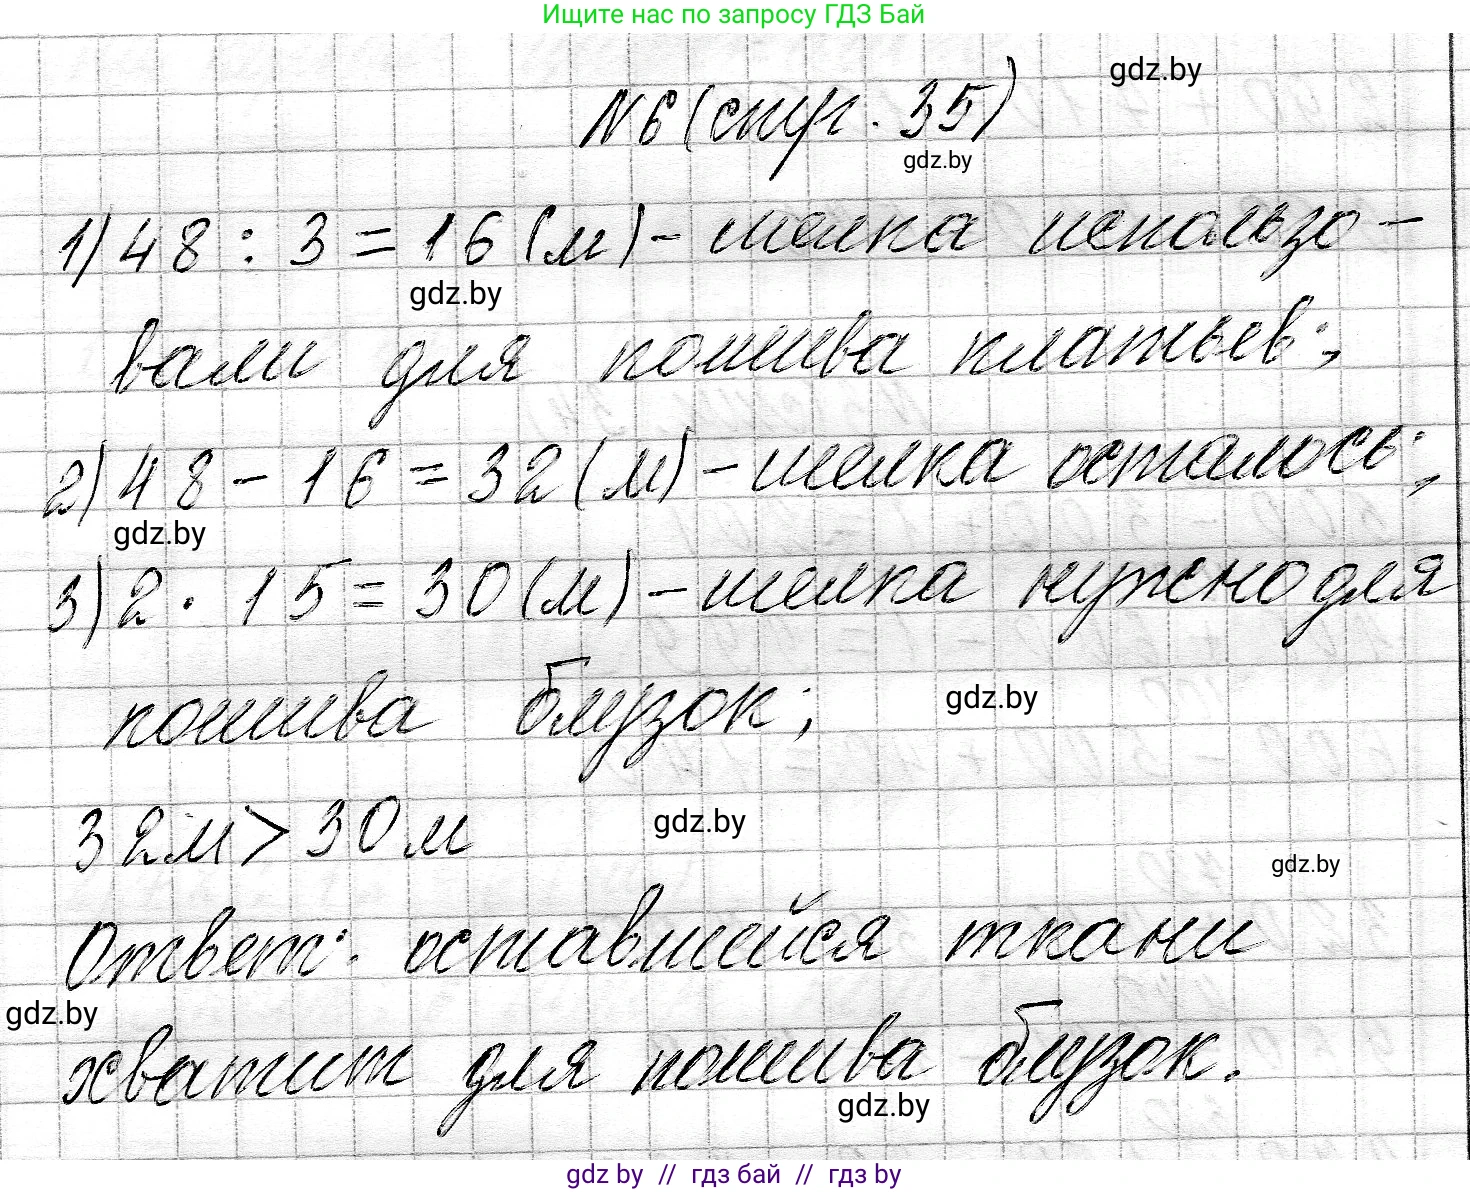 Ищите нас по запросу ГДЗ Бай
gdz.by
N6 (стр. 35)
gdz.by
1) 48 : 3 = 16 (м) - шелка использо-
gdz.by
вали для пошива платьев;
2) 48 - 16 = 32 (м) - шелка осталось;
gdz.by
3) 2 · 15 = 30 (м) - шелка нужно для
пошива блузок;
gdz.by
32м > 30м
gdz.by
gdz.by
Ответ: оставшейся ткани
gdz.by
хватит для пошива блузок.
gdz.by
gdz by // гдз бай // гдз by